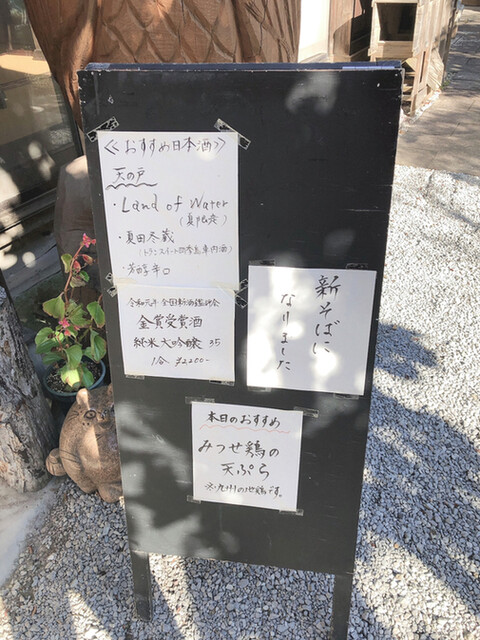 ≪おすすめ日本酒≫
天の戸
・Land of Water
・夏田冬蔵
(トランスイート四季島車内酒)
・芳醇辛口
令和元年 全国新酒鑑評会
金賞受賞酒
純米大吟醸 35
1合 ¥2200-
新そばに
なりました
本日のおすすめ
みつせ鶏の
天ぷら
※九州の地鶏です。